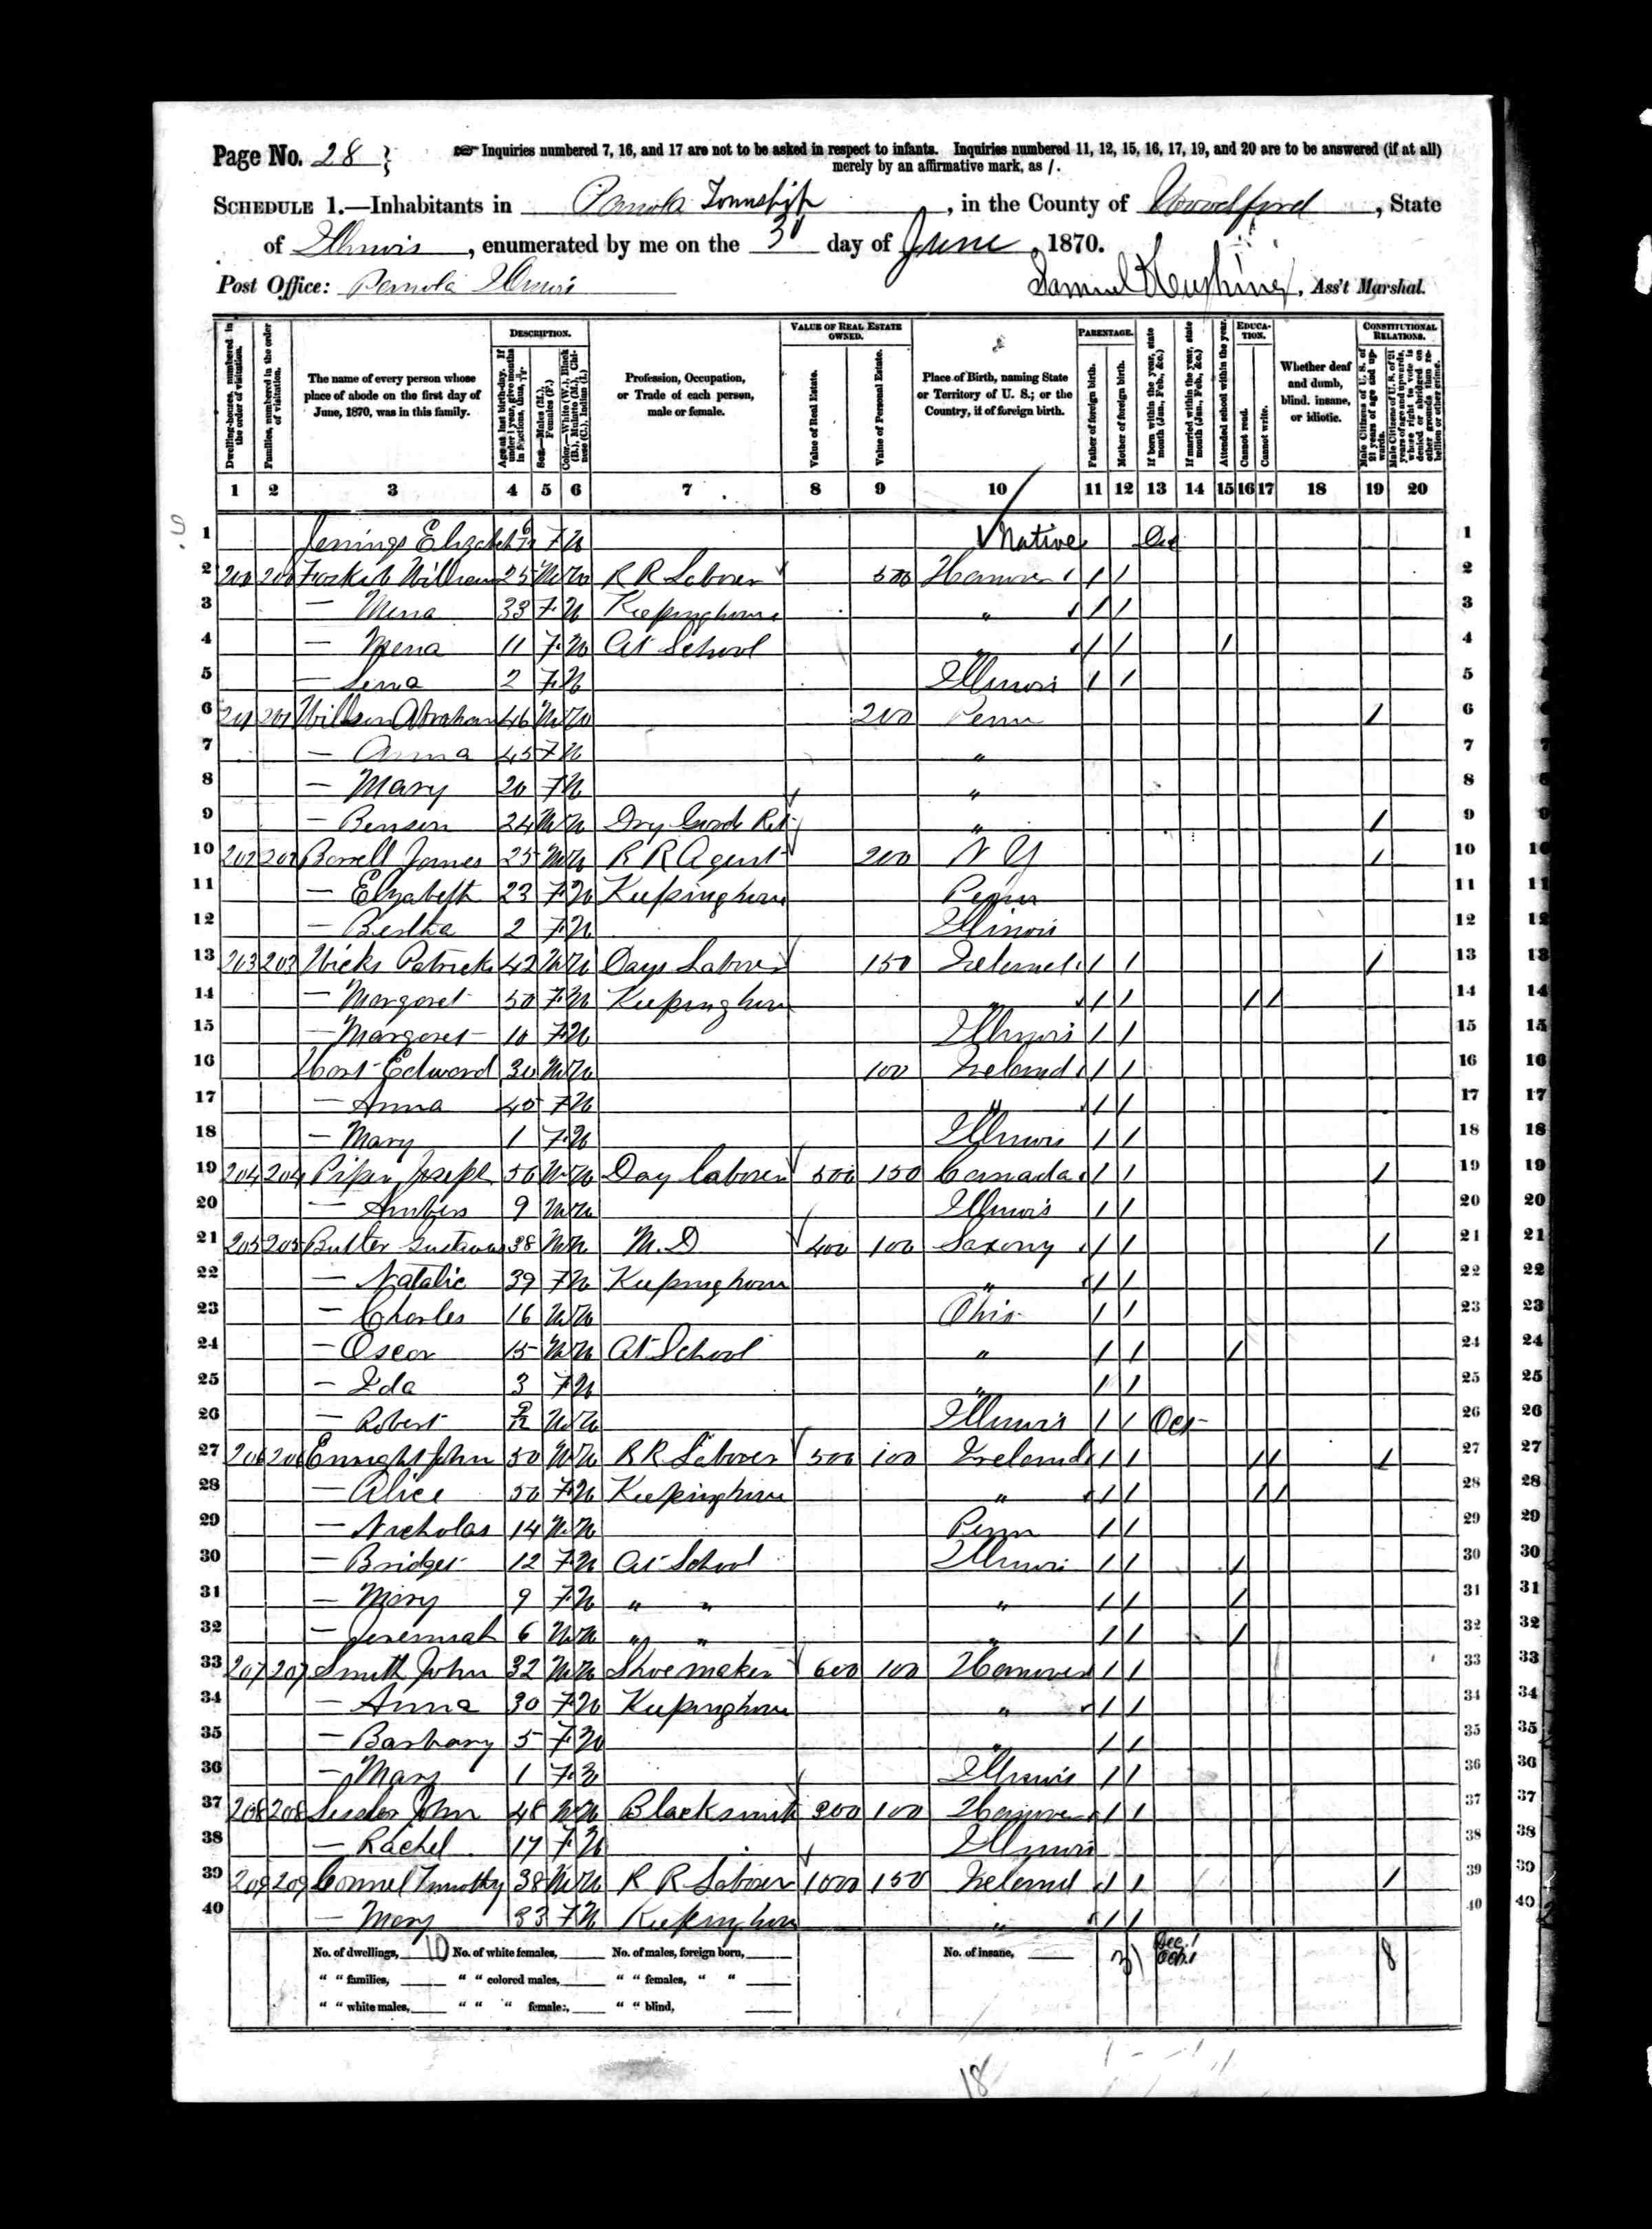 Page No. 28
Inquiries numbered 7, 16, and 17 are not to be asked in respect to infants. Inquiries numbered 11, 12, 15, 16, 17, 19, and 20 are to be answered (if at all)
merely by an affirmative mark, as /.
SCHEDULE 1.—Inhabitants in Panola Township, in the County of Woodford, State
of Illinois, enumerated by me on the 30 day of June, 1870.
Post Office: Panola Illinois
Samuel, Ass't Marshal.
Dwelling-houses, numbered in the order of visitation.
Families, numbered in the order of visitation.
The name of every person whose place of abode on the first day of June, 1870, was in this family.
DESCRIPTION.
Age at last birth-day. If under 1 year, give months in fractions, thus,
Sex.—Males (M.), Females (F.)
Color.—White (W.), Black (B.), Mulatto (M.), Chinese (C.), Indian (I.)
Profession, Occupation, or Trade of each person, male or female.
VALUE OF REAL ESTATE OWNED.
Value of Real Estate.
Value of Personal Estate.
Place of Birth, naming State or Territory of U. S.; or the Country, if of foreign birth.
PARENTAGE.
Father of foreign birth.
Mother of foreign birth.
If born within the year, state month (Jan., Feb., &c.)
If married within the year, state month (Jan., Feb., &c.)
Attended school within the year.
EDUCATION.
Cannot read.
Cannot write.
Whether deaf and dumb, blind, insane, or idiotic.
CONSTITUTIONAL RELATIONS.
Male Citizens of U. S. of 21 years of age and upwards.
Male Citizens of U. S. of 21 years of age and upwards, whose right to vote is denied or abridged on other grounds than rebellion or other crime.
1 2 3 4 5 6 7 8 9 10 11 12 13 14 15 16 17 18 19 20
1 Jennings Elizabeth F W Native 1
2 200 200 William 25 M W R R Laborer 500 Hanover / / 2
3 — Mena 33 F W Keepinghouse " / / 3
4 — Mena 11 F W At School " / / / 4
5 — Lena 2 F W Illinois / / 5
6 201 201 Willson Abraham 46 M W 200 Penn / 6
7 — Anna 45 F W " 7
8 — Mary 20 F W " 8
9 — Benson 24 M W Dry Goods Ret " / 9
10 202 202 James 25 M W R R Agent 200 N Y / 10
11 — Elizabeth 23 F W Keepinghouse Penn 11
12 — Bertha 2 F W Illinois 12
13 203 203 Hicks Patrick 42 M W Days Laborer 150 Ireland / / / 13
14 — Margaret 50 F W Keepinghouse " / / / / 14
15 — Margaret 10 F W Illinois / / 15
16 Hart Edward 30 M W 100 Ireland / / 16
17 — Anna 40 F W " / / 17
18 — Mary 1 F W Illinois / / 18
19 204 204 Joseph 50 M W Day Laborer 500 150 Canada / / / 19
20 — 9 M W Illinois / / 20
21 205 205 Butler Gustavus 38 M W M. D 400 100 Saxony / / / 21
22 — Natalie 39 F W Keepinghouse " / / 22
23 — Charles 16 M W Ohio / / 23
24 — Oscar 15 M W At School " / / / 24
25 — Ida 3 F W " / / 25
26 — Robert M W Illinois / / Oct 26
27 206 206 Enright John 50 M W R R Laborer 500 100 Ireland / / / / / 27
28 — Alice 50 F W Keepinghouse " / / / / 28
29 — Nicholas 14 M W Penn / / 29
30 — Bridget 12 F W At School Illinois / / / 30
31 — Mary 9 F W " " " / / / 31
32 — Jeremiah 6 M W " " " / / / 32
33 207 207 Smith John 32 M W Shoemaker 600 100 Hanover / / 33
34 — Anna 30 F W Keepinghouse " / / 34
35 — Barbary 5 F W " / / 35
36 — Mary 1 F W Illinois / / 36
37 208 208 John 48 M W Blacksmith 100 Hanover / / 37
38 — Rachel 17 F W Illinois 38
39 209 209 Connel Timothy 38 M W R R Laborer 1000 150 Ireland / / / 39
40 — Mary 33 F W Keepinghouse " / / 40
No. of dwellings, 10 No. of white females, No. of males, foreign born, No. of insane, Dec. 1 8
" " families, " " colored males, " " females, " " Oct. 1
" " white males, " " " females, " " blind,
18